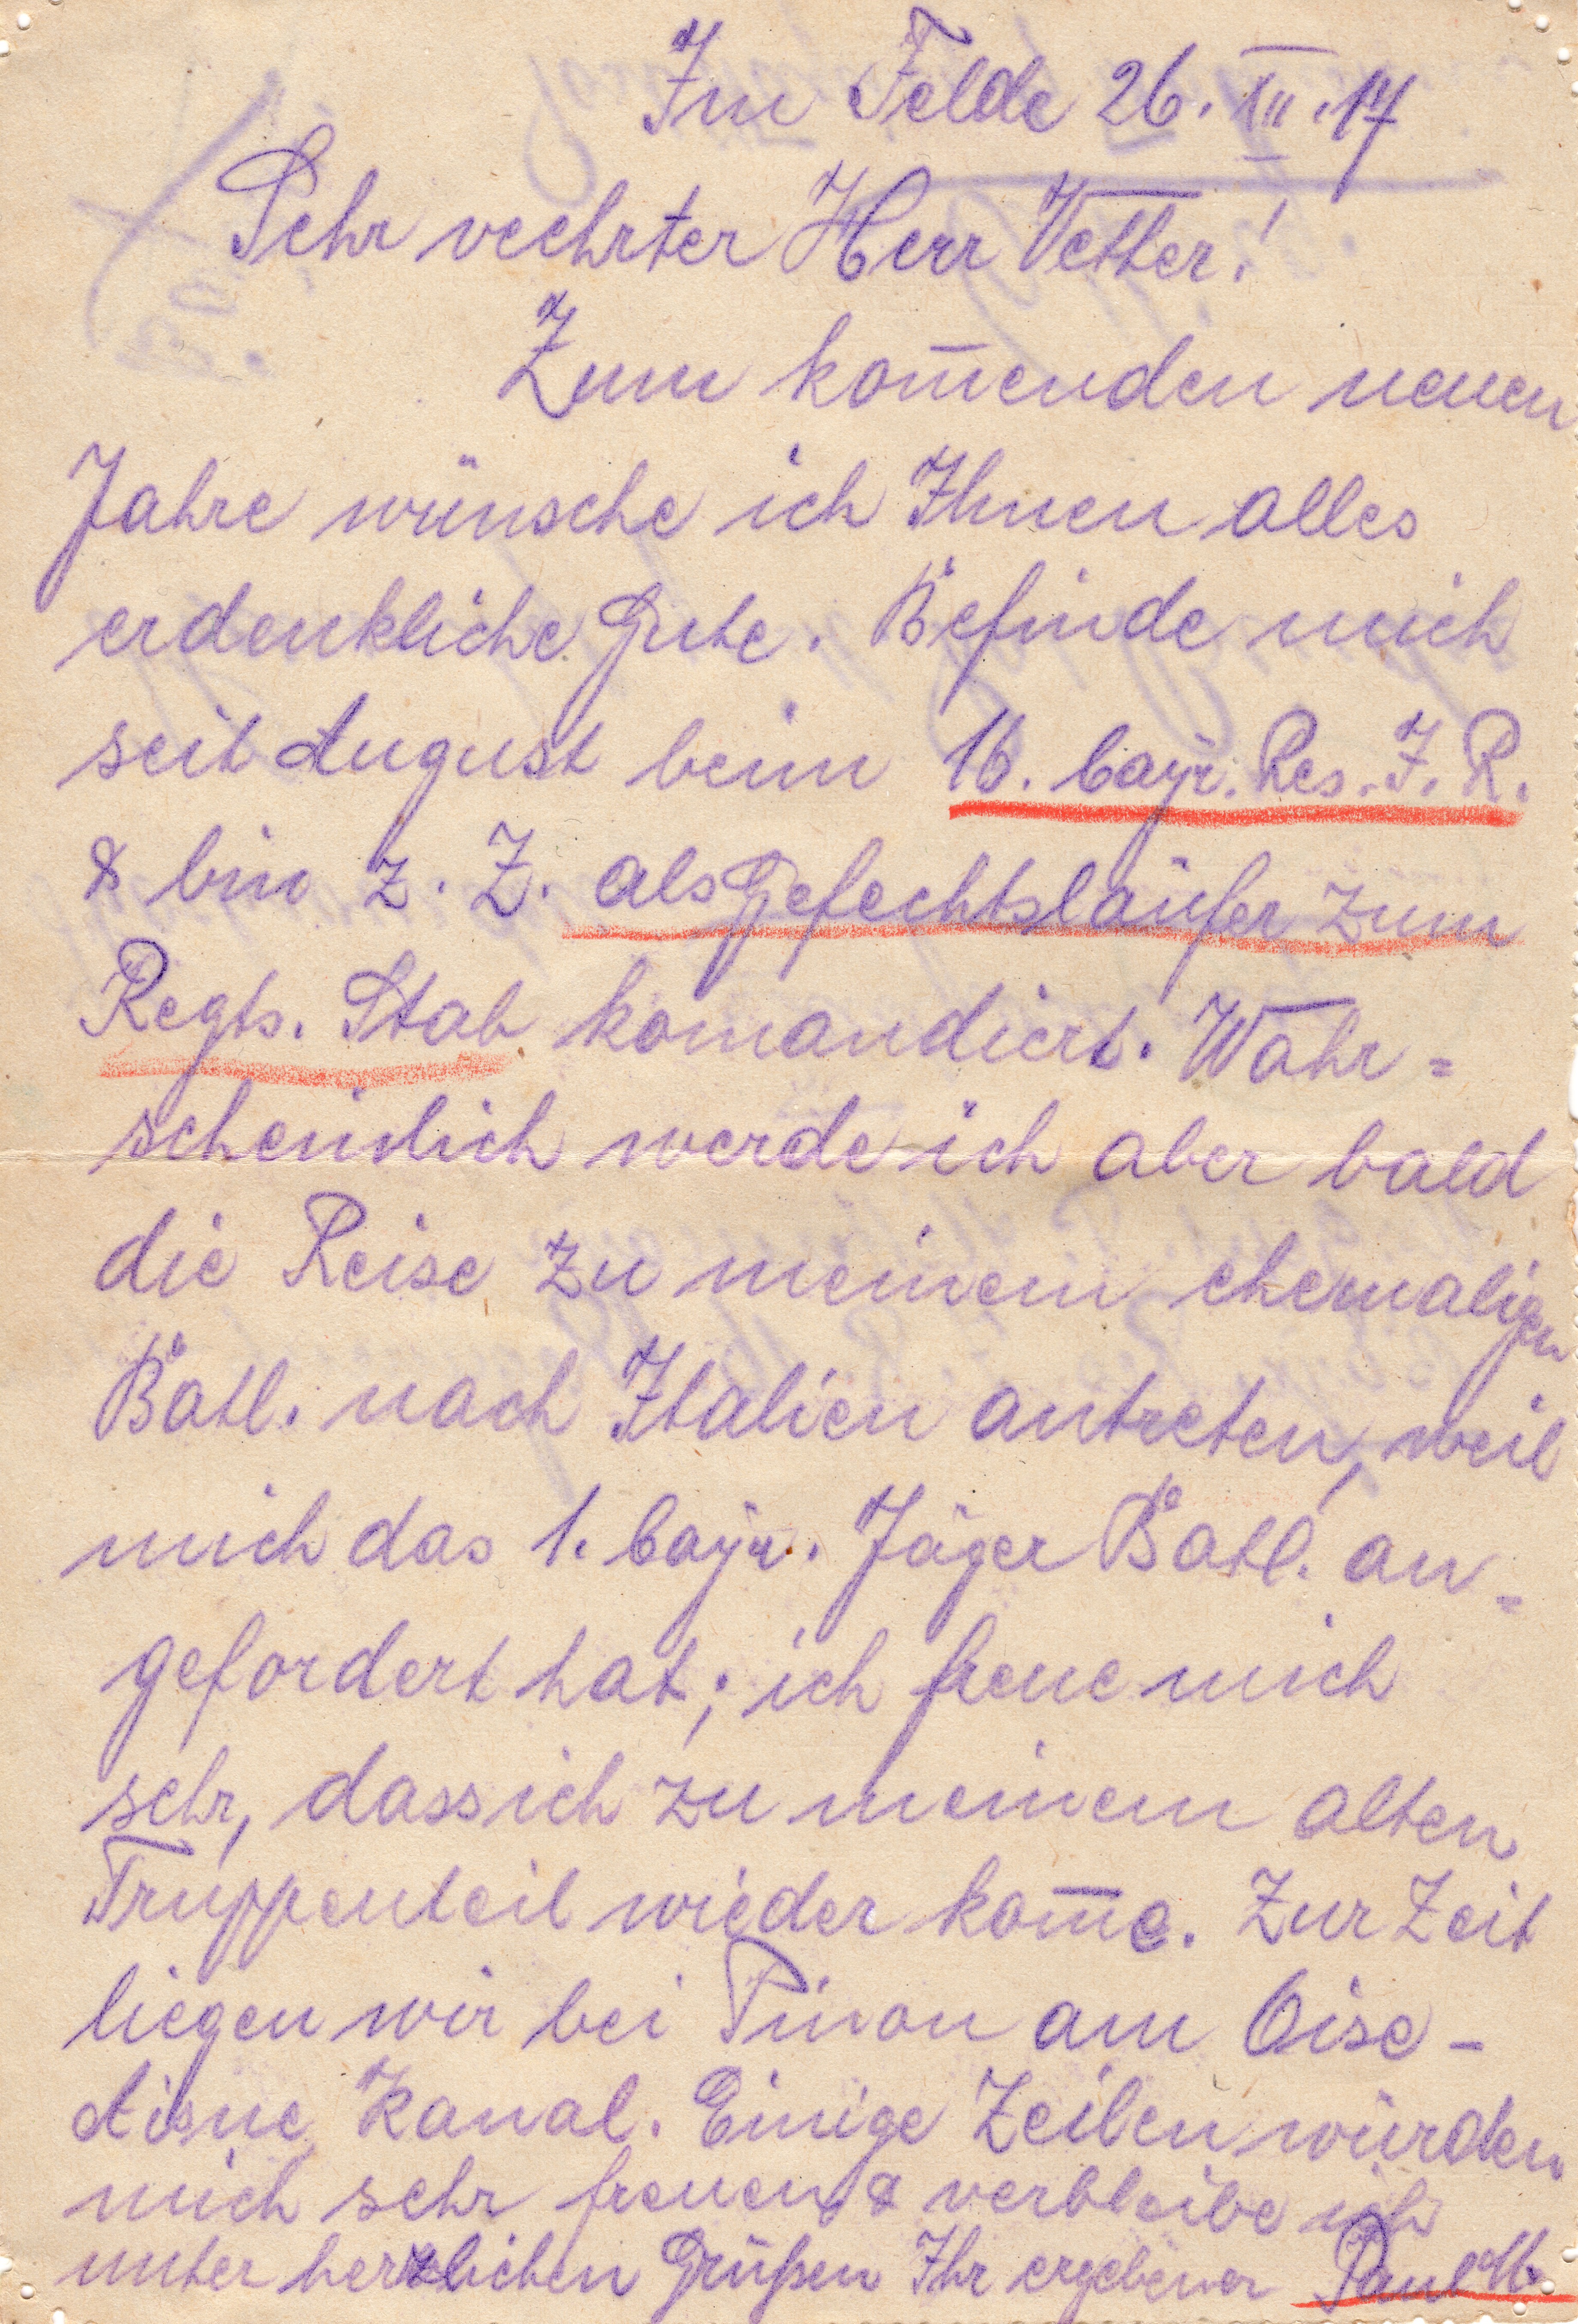 Im Felde 26. XII. 17
Sehr veehrter Herr Vetter!
Zum kom̄enden neuen
Jahre wünsche ich Ihnen alles
erdenkliche Gute. Befinde mich
seit August beim 16. bayr. Res. I. R.
& bin z. Z. als Gefechtsläufer zum
Regts. Stab komandiert. Wahr=
scheinlich werde ich aber bald
die Reise zu meinem ehemaligen
Batl. nach Italien antreten, weil
mich das 1. bayr. Jäger Batl. an=
gefordert hat; ich freue mich
sehr, dass ich zu meinem alten
Truppenteil wieder kom̄e. Zur Zeit
liegen wir bei Pinon am Oise-
Aisne Kanal. Einige Zeilen würden
mich sehr freuen & verbleibe ich
unter herzlichen Grüßen Ihr ergebener Paul M.